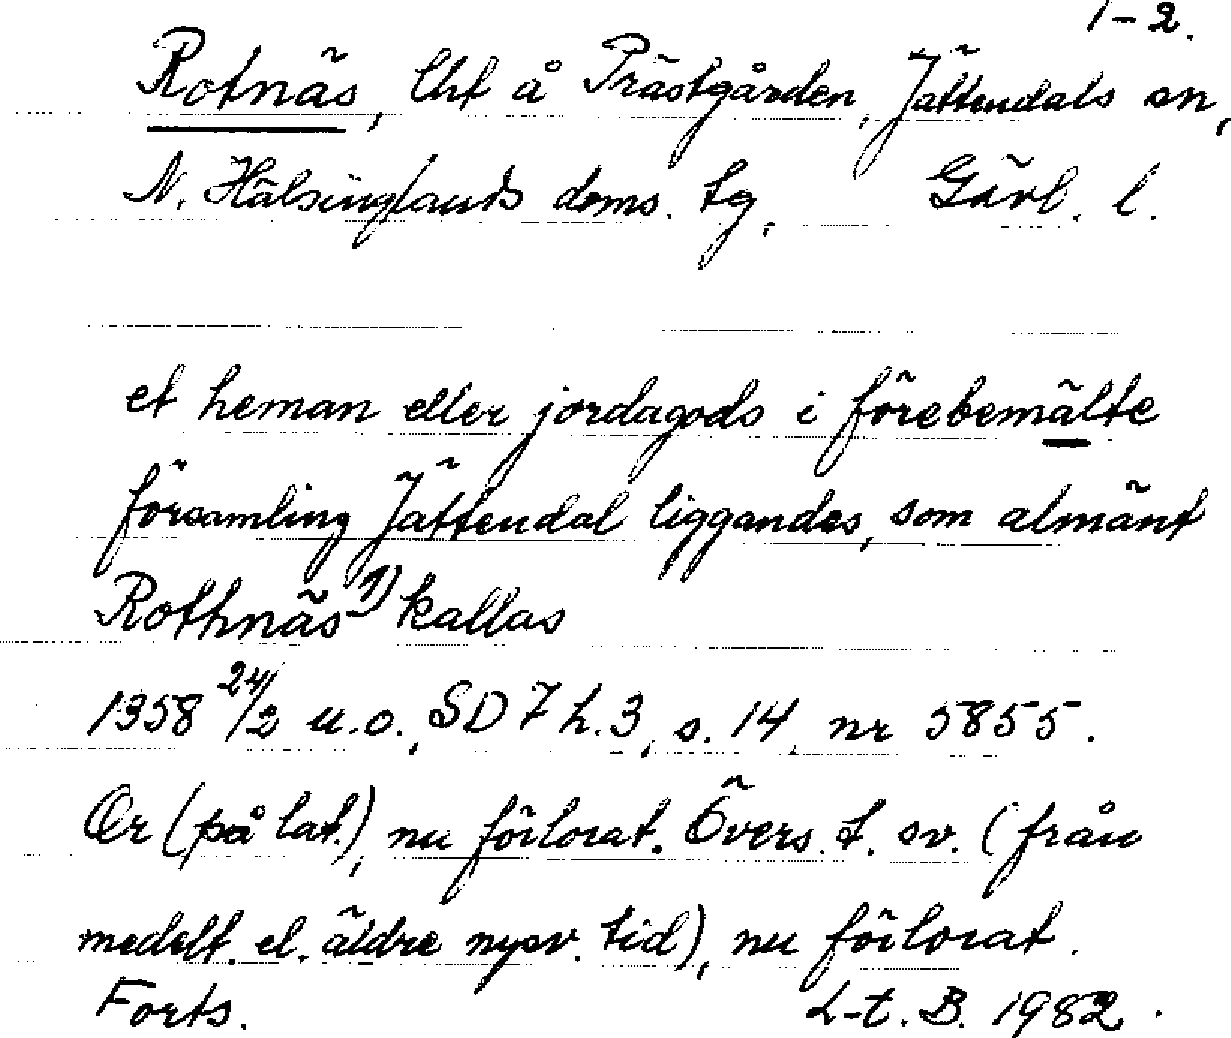 1-2.
Rotnäs, Uht å Prästgården, Jättendals sn,
N. Hälsinglands doms. tg, Gävl. l.
et heman eller jordagods i förebemälte
församling Jättendal liggandes, som almänt
Rothnäs 1) kallas
1358 24/2 u.o., SD 7 h.3, s. 14, nr 5855.
Or (på lat.), nu förlorat. Övers. t. sv. (från
medelt. el. äldre nysv. tid), nu förlorat.
Forts. L-t. B. 1982.